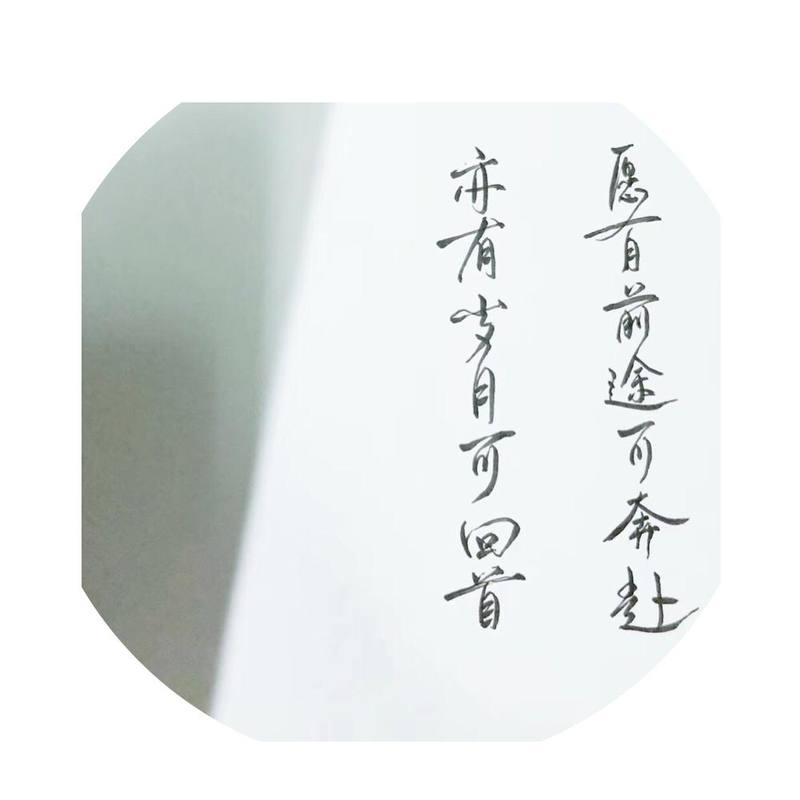 愿有前途可奔赴
亦有岁月可回首